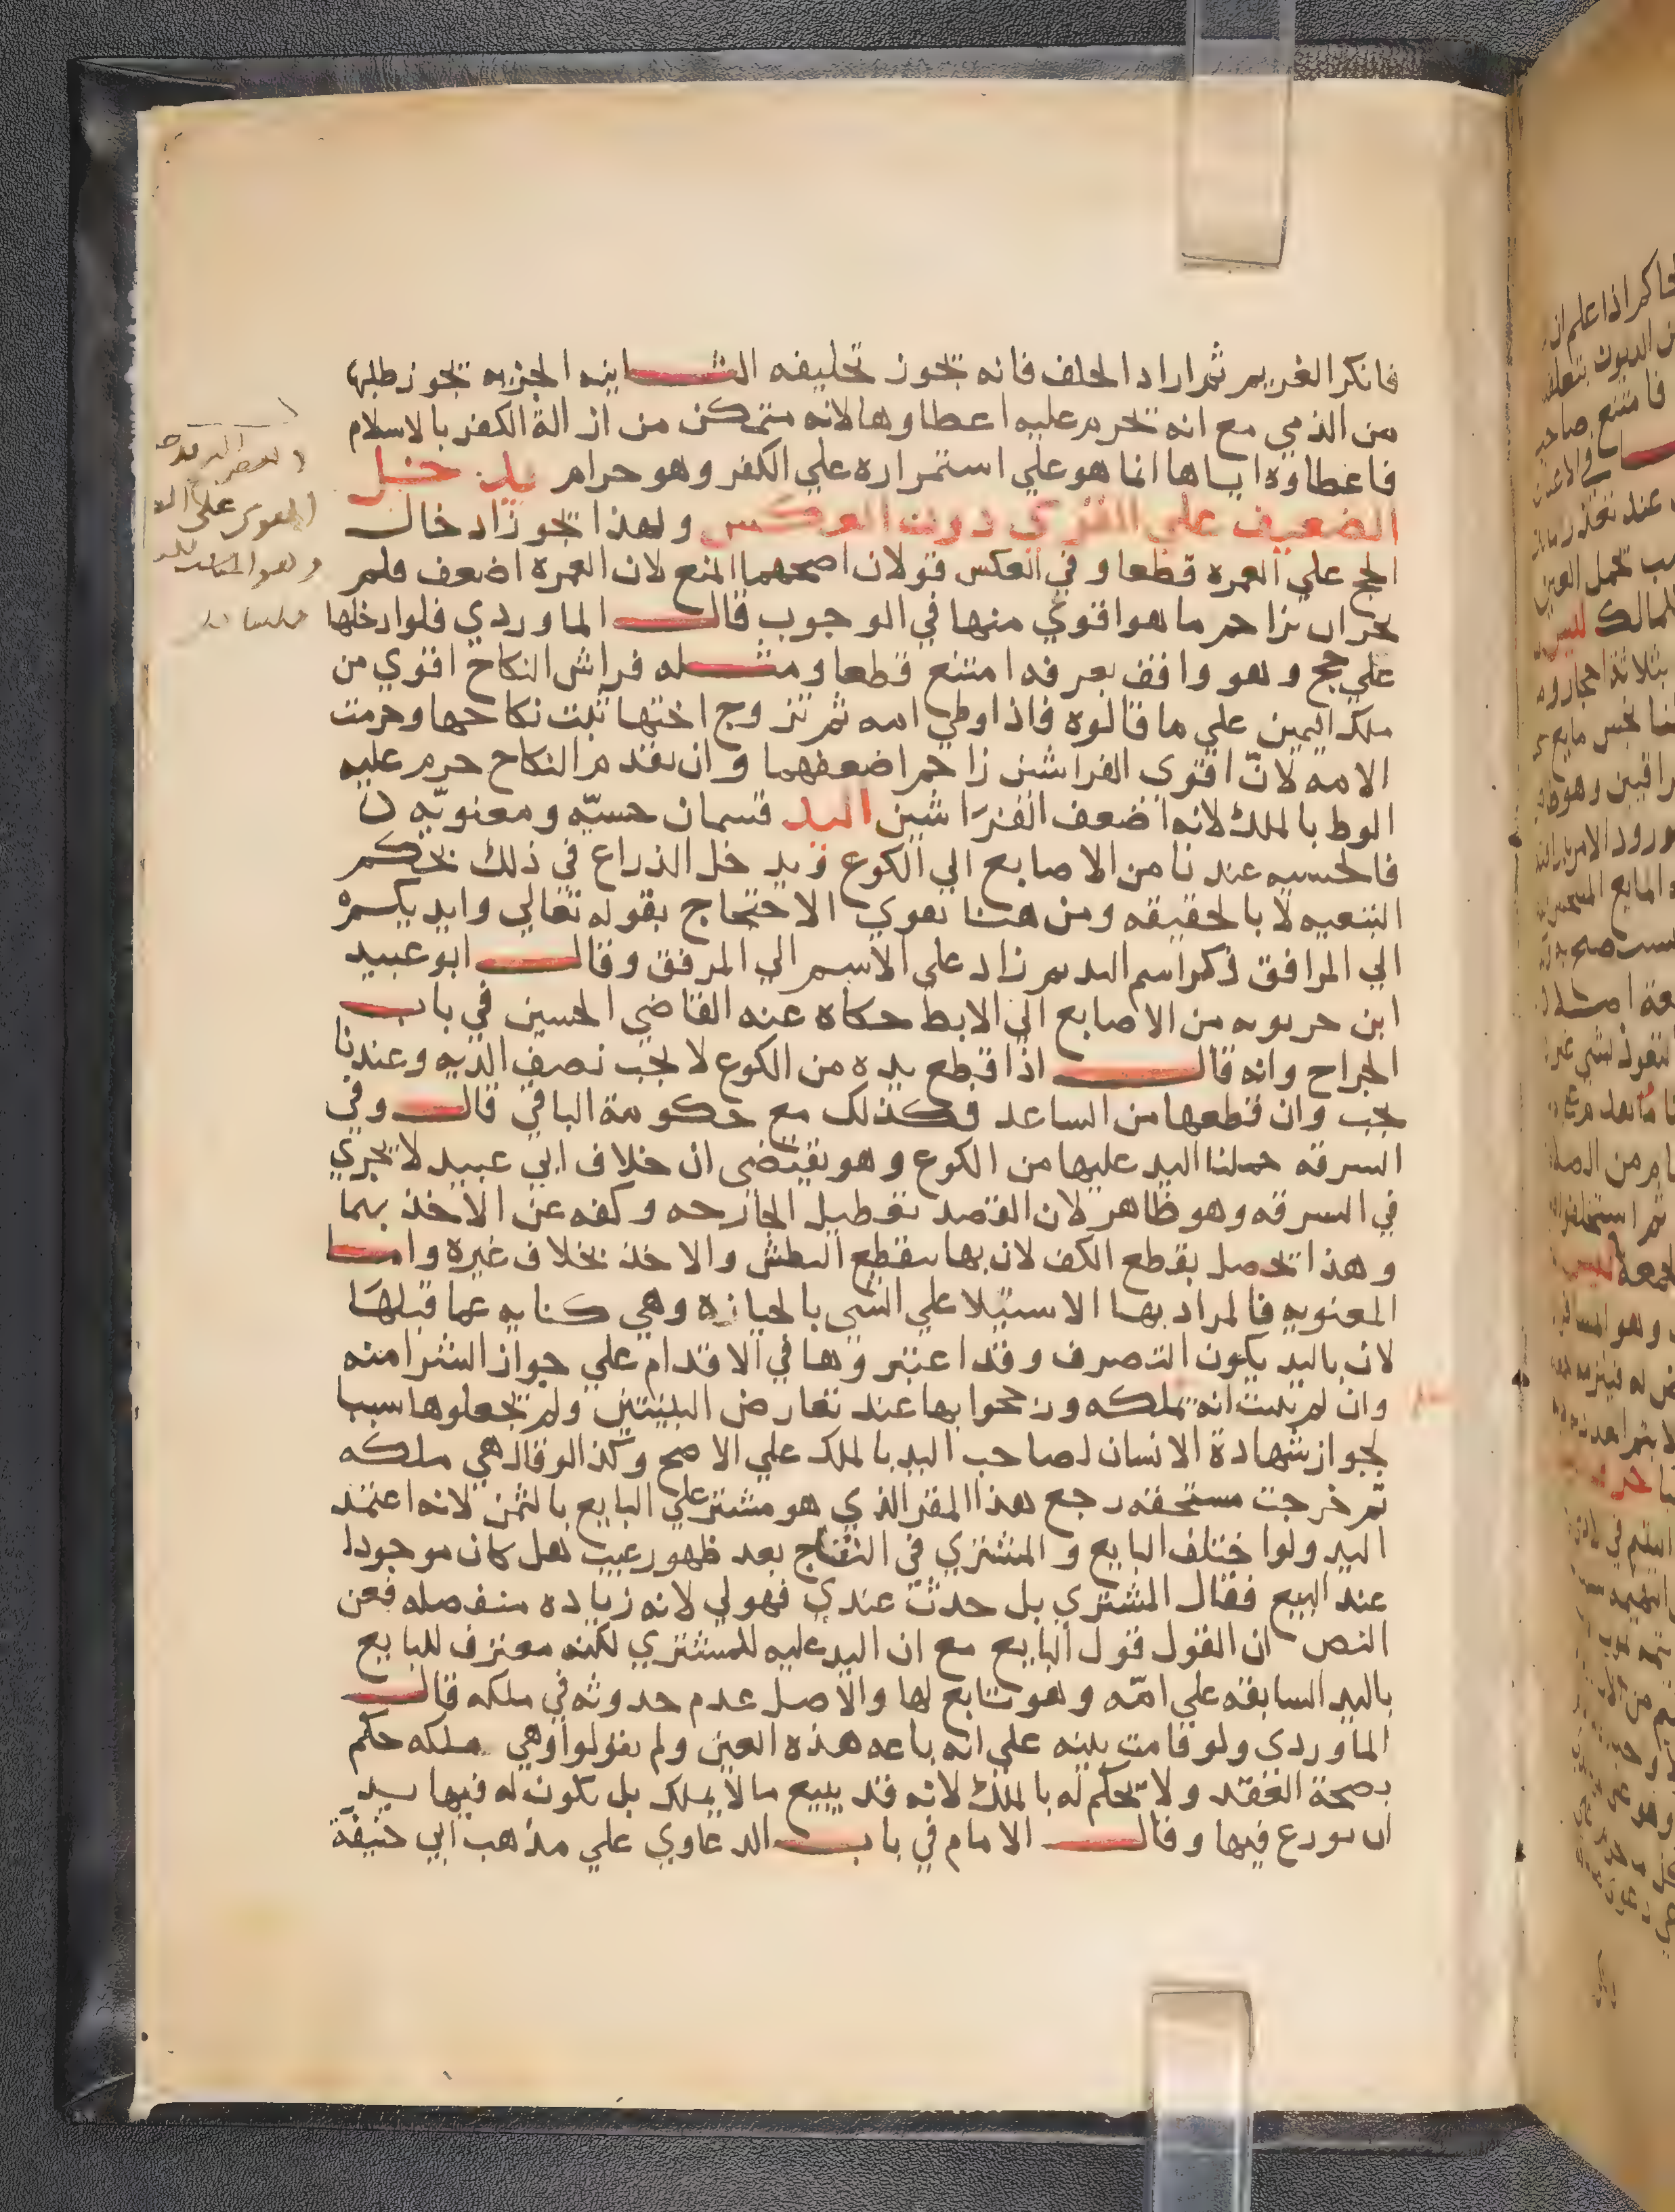 فانكر الغريم ثم اراد الحلف فانه يجوز تحليفه الثانيه الجزيه يجوز طلبها
من الذمي مع انه يحرم عليه اعطاوها لانه متمكن من ازالة الكفر بالاسلام
فاعطاوه اياها انما هو علي استمراره علي الكفر وهو حرام يدخل
الضعيف علي القوي دون العكس ولهذا يجوز ادخال
الحج علي العمره قطعا وفي العكس قولان اصحهما المنع لان العمره اضعف فلم
يجز ان تزاحم ما هو اقوي منها في الوجوب قال الماوردي فلو ادخلها
علي حج وهو واقف بعرفه امتنع قطعا ومثله فراش النكاح اقوي من
ملك اليمين علي ما قالوه فاذا وطي امه ثم تزوج اختها ثبت نكاحها وحرمت
الامه لانّ اقوي الفراشين زاحم اضعفهما وان تقدم النكاح حرم عليه
الوط بالملك لانه اضعف الفرَاشين اليد قسمان حسيّه ومعنويّه
فالحسيه عندنا من الاصابع الي الكوع ويدخل الذراع في ذلك بحكم
التبعيه لا بالحقيقه ومن هنا يقوي الاحتجاج بقوله تعالي وايديكم
الي المرافق ذكر اسم اليد ثم زاد علي الاسم الي المرفق وقال ابو عبيد
ابن حربويه من الاصابع الي الابط حكاه عنه القاضي الحسين في باب
الجراح وانه قال اذا قطع يده من الكوع لا يجب نصف الديه وعندنا
يجب وان قطعها من الساعد فكذلك مع حكومة الباقي قال وفي
السرقه حملنا اليد عليها من الكوع وهو يقتضي ان خلاف ابي عبيد لا يجري
في السرقه وهو ظاهر لان القصد تعطيل الجارحه وكفه عن الاخذ بهما
وهذا يحصل بقطع الكف لان بها ينقطع البطش والاخذ بخلاف غيره واما
المعنويه فالمراد بها الاستيلا علي الشي بالحيازه وهي كنايه عما قبلهَا
لان باليد يكون التصرف وقد اعتبروها في الاقدام علي جواز الشرا منه
وان لم يثبت انه يملكه ورجحوا بها عند تعارض البينتين ولم يجعلوها سببا
لجواز شهادة الانسان لصاحب اليد بالملك علي الاصح وكذا لو قال هي ملكه
ثم خرجت مستحقه رجع هذا المقر الذي هو مشتر علي البايع بالثمن لانه اعتمد
اليد ولو اختلف البايع والمشتري في النتاج بعد ظهور عيب هل كان موجودا
عند البيع فقال المشتري بل حدث عندي فهو لي لانه زياده منفصله فعن
النص ان القول قول البايع مع ان اليد عليه للمشتري لكنه معترف للبايع
باليد السابقه علي امّه وهو تابع لها والاصل عدم حدوثه في ملكه قال
الماوردي ولو قامت بينه علي انه باعه هذه العين ولم يقولوا وهي ملكه حكم
بصحة العقد ولا يحكم له بالملك لانه قد يبيع ما لا يملك بل يكون له فيها يد
ان نوزع فيها وقال الامام في باب الدعاوي علي مذهب ابي حنيفة